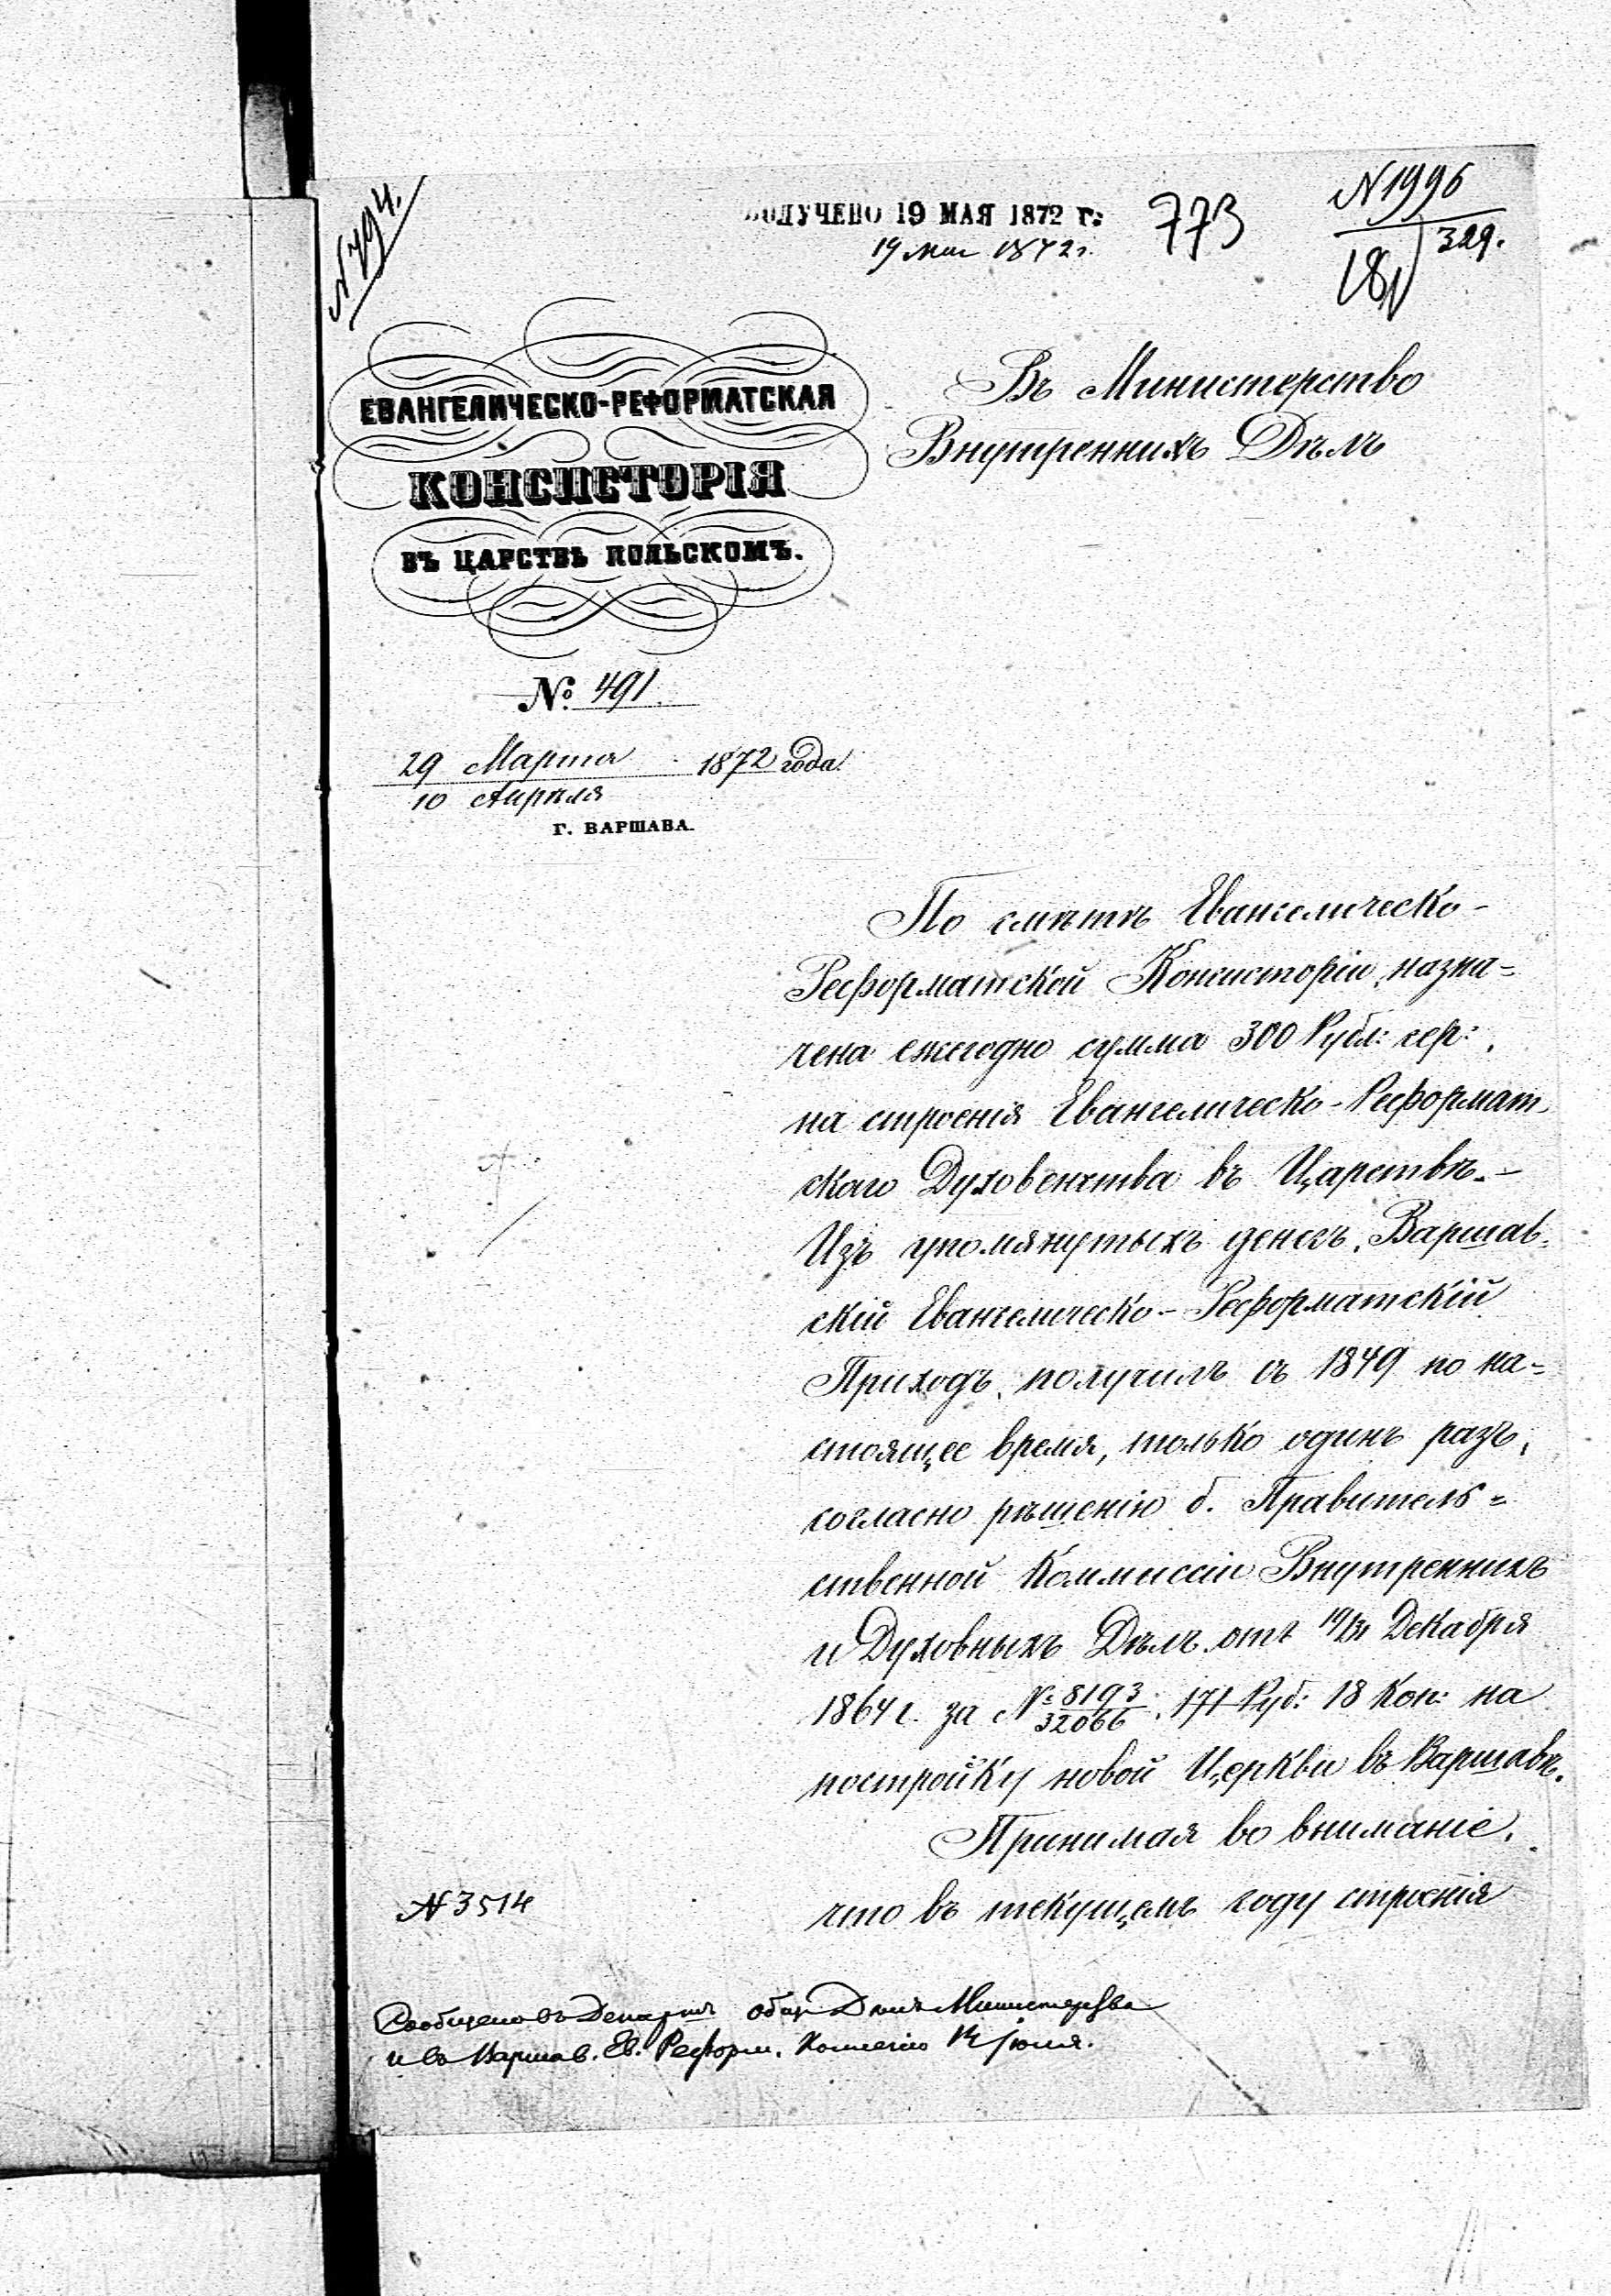 № 794.
ПОЛУЧЕНО 19 МАЯ 1872 Г:
19 мая 1872 г.
773
№ 1996
329.
181
ЕВАНГЕЛИЧЕСКО-РЕФОРМАТСКАЯ
КОНСИСТОРІЯ
ВЪ ЦАРСТВѢ ПОЛЬСКОМЪ.
№ 491.
29 Марта 1872 года.
10 Апрѣля
Г. ВАРШАВА.
Въ Министерство
Внутреннихъ Дѣлъ
По смѣтѣ Евангелическо-
Реформатской Консисторіи, назна=
чена ежегодно сумма 300 Рубл: сер:
на строенія Евангелическо-Реформат-
скаго Духовенства въ Царствѣ.-
Изъ упомянутыхъ денегъ, Варшав-
скій Евангелическо-Реформатскій
Приходъ, получилъ съ 1849 по на=
стоящее время, только одинъ разъ,
согласно рѣшенію б. Правитель=
ственной Коммиссіи Внутреннихъ
и Духовныхъ Дѣлъ отъ 19/31 Декабря
1864 г. за № 8193/32066, 171 Руб: 18 Коп: на
постройку новой Церкви въ Варшавѣ.
Принимая во вниманіе,
что въ текущемъ году строенія
№ 3514
Сообщено въ Департ. общ. Дѣлъ Министерства
и въ Варшав. Ев. Реформ. іюня.